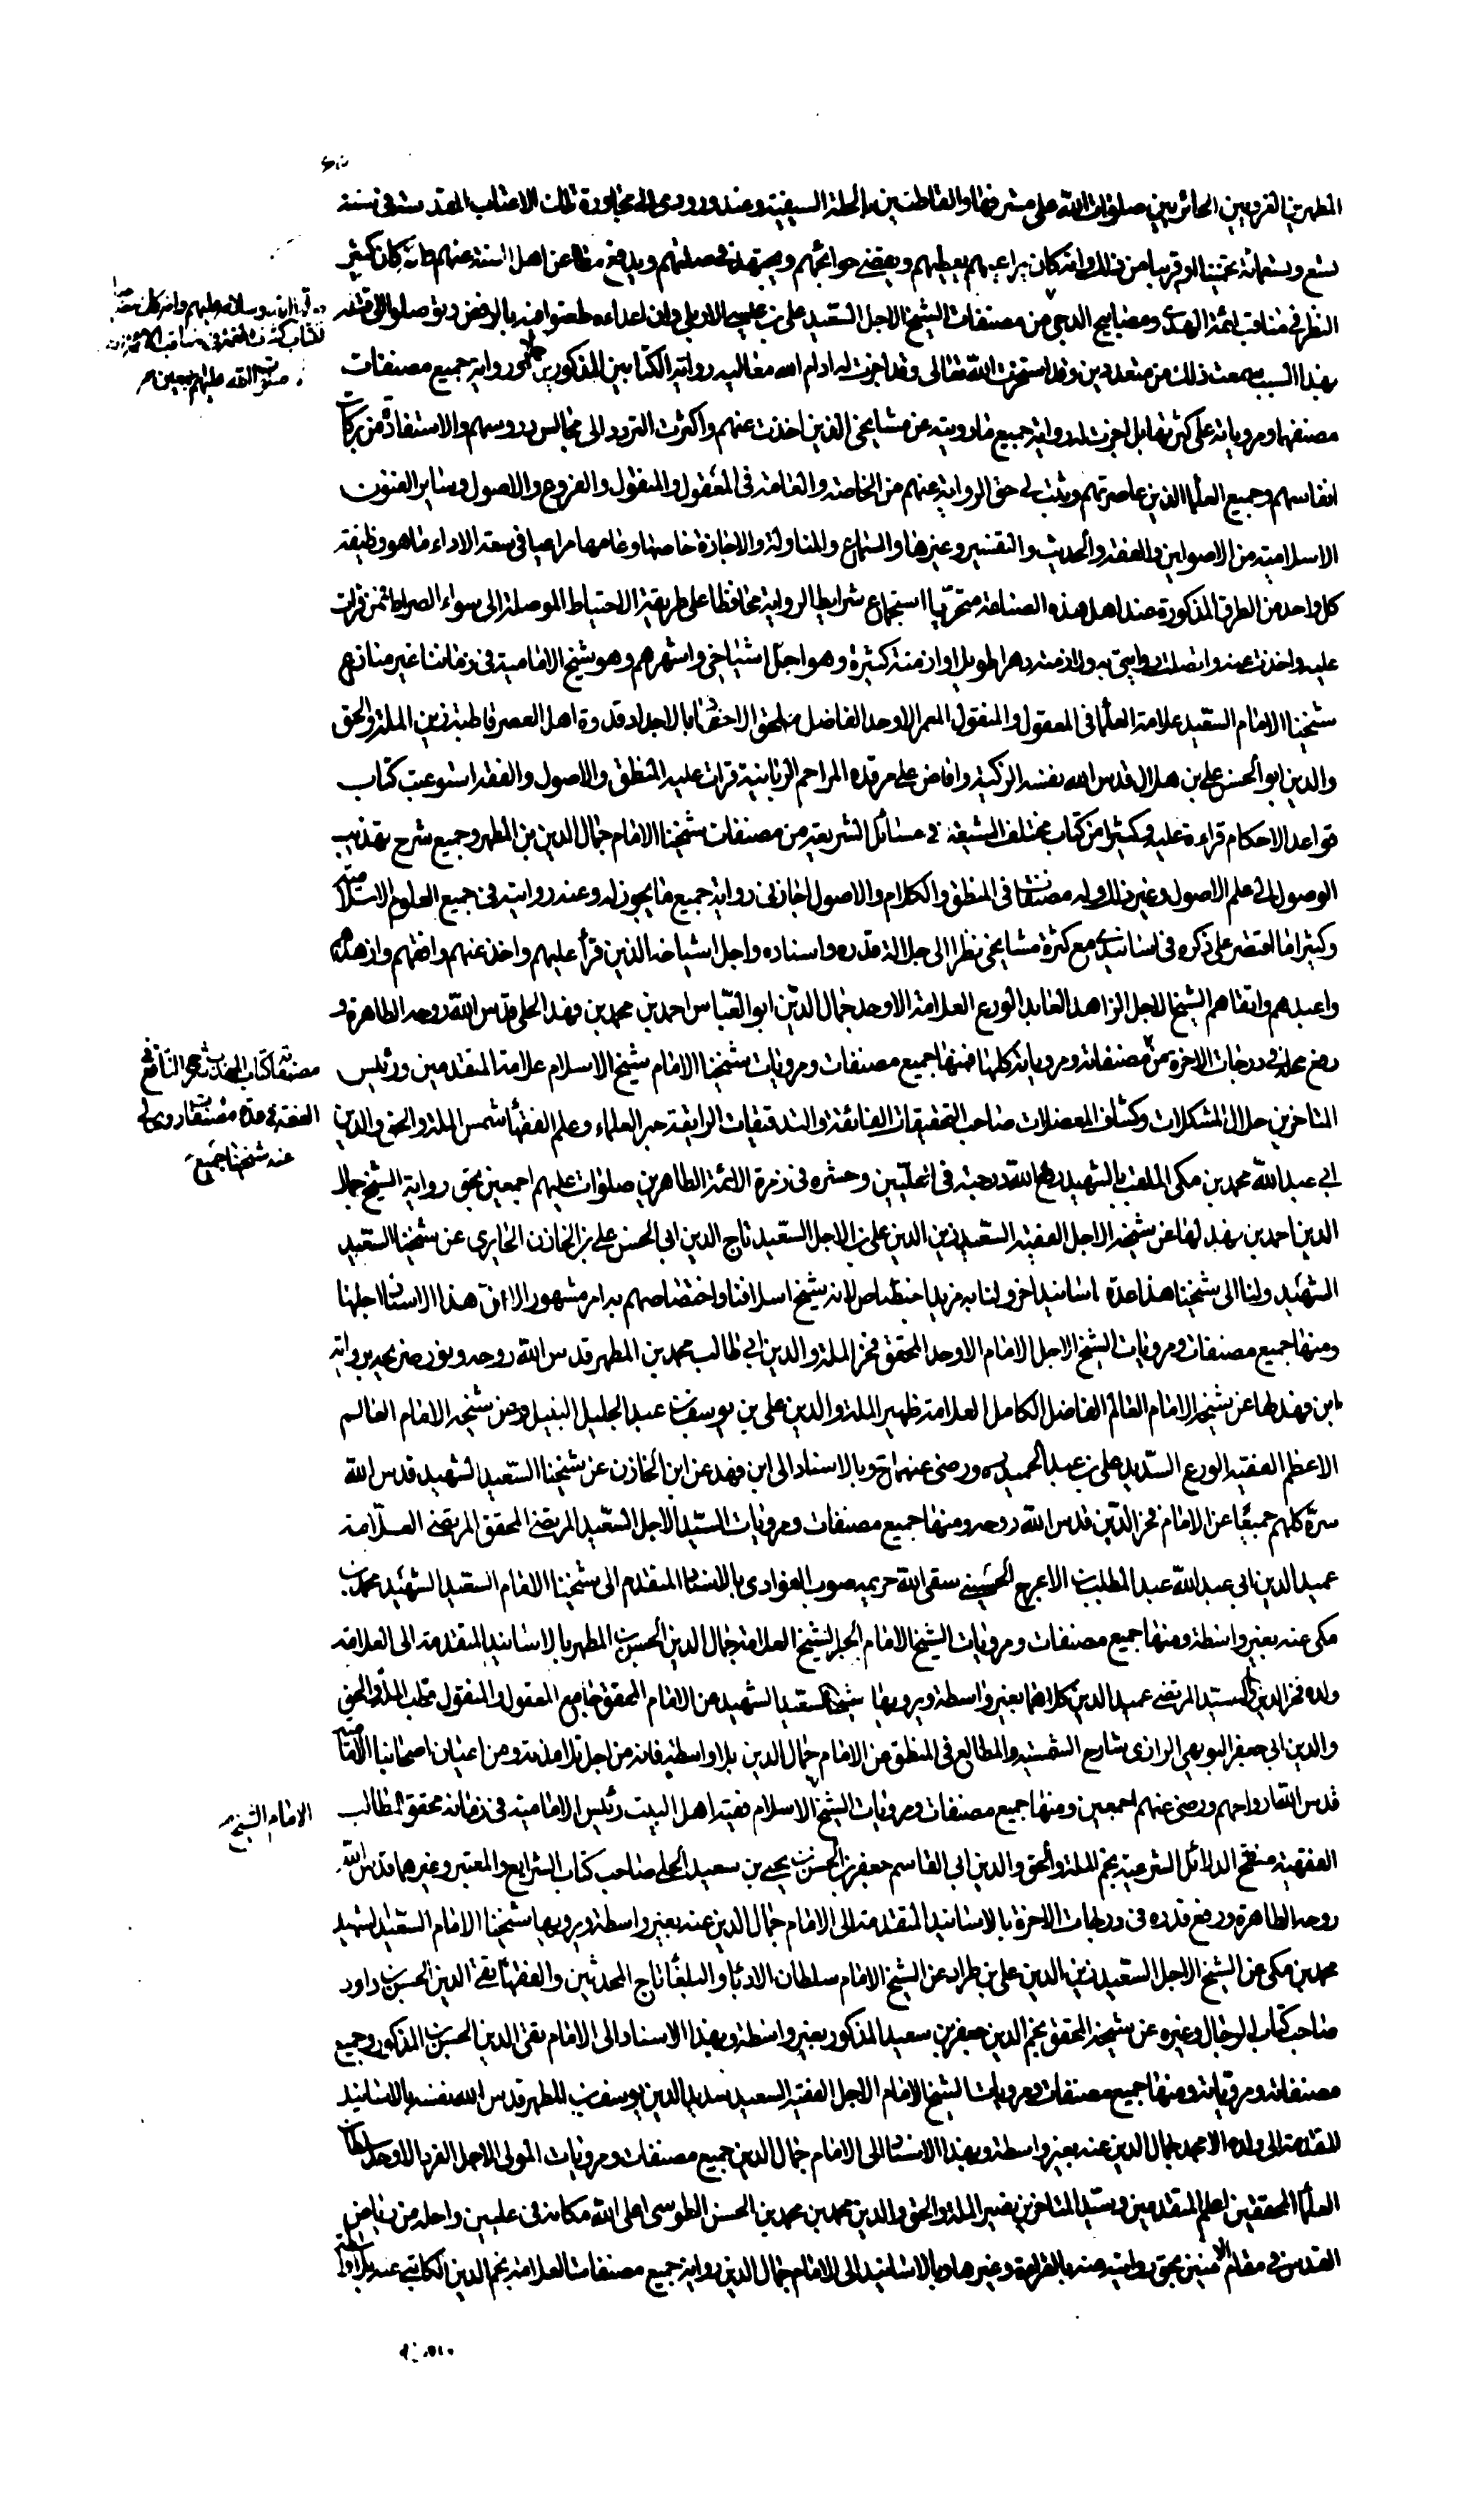 المطهرين الغرويين الحائريين صلوات الله على مشرفها والقاطنين بالحلة السيفية وعند ورودي الى مجاورة تلك الاعتاب المقدسة في سنة
تسع وتسعمائة تخمينا او قريبا من ذلك وانه كان يراعيهم يعطيهم ويقضي حوائجهم ويجتهد في صلتهم ويدفع مظالم اهل السنة عنهم وانه كان كثير
النظر في مناقب ائمة الهدى ومصابيح الدجى من مصنفات الشيخ الاجل السعيد علي بن عيسى الاربلي وان اعداءه طعنوا فيه بالرفض وتوصلوا الى قتله
بهذا السبب سمعت ذلك من متعددين وقد استخرت الله تعالى وقد اجزت له ادام الله معاليه رواية الكتابين المذكورين ورواية جميع مصنفات
مصنفهما ومروياته على كثرتها بل اجزت له رواية جميع ما رويته عن مشايخي الذين اخذت عنهم واكثرت التردد الى مجالس دروسهم والاستفادة من بركات
انفاسهم وجميع العلما الذين عاصرتهم وثبت لي حق الرواية عنهم من الخاصة والعامة في المعقول والمنقول والفروع والاصول وساير الفنون
الاسلامية من الاصولين والفقه والحديث والتفسير وغيرها والسماع والمناولة والاجازة خاصها وعامها مراعيا في سعة الاداء ما هو وظيفة
كل واحد من الطرق المذكورة عند اهل هذه الصناعة متحريا استجماع شرايط الرواية محافظا على طريقة الاحتياط الموصلة الى سواء الصراط فمن قرات
عليه واخذت عنه واتصلت روايتي به ولازمته دهرا طويلا وازمنة كثيرة وهو اجل اشياخي واشهرهم وهو شيخ الامامية في زماننا غير منازع
شيخنا الامام السعيد علامة العلما في المعقول والمنقول المعمر الاوحد الفاضل ملحق الاحفاد بالاجداد قدوة اهل العصر قاطبة زين الملة والحق
والدين ابو الحسن علي بن هلال قدس الله نفسه الزكية وافاض على مرقده المراحم الربانية قرات عليه المنطق والاصول والفقه استوعبت كتاب
قواعد الاحكام قراءة عليه وكثيرا من كتاب مختلف الشيعة في مسائل الشريعة من مصنفات شيخنا الامام جمال الدين بن المطهر وجميع شرح تهذيب
الوصول الى علم الاصول وغير ذلك وله مصنفات في المنطق والكلام والاصول اجازني رواية جميع ما يجوز له وعنه روايته في جميع العلوم الاسلامية
وكثيرا ما اقتصر على ذكره في اسانيدي مع كثرة مشايخي نظرا الى جلالة قدره واسناده واجل اشياخه الذين قرأ عليهم واخذ عنهم وافقههم وازهدهم
واعبدهم واتقاهم الشيخ الاجل الزاهد العابد الورع العلامة الاوحد جمال الدين ابو العباس احمد بن محمد بن فهد الحلي قدس الله روحه الطاهرة و
رفع محله في درجات الاخرة من مصنفاته ومروياته كلها فمنها جميع مصنفات ومرويات شيخنا الامام شيخ الاسلام علامة المتقدمين ورئيس
المتاخرين حلال المشكلات وكشاف المعضلات صاحب التحقيقات الفائقة والتدقيقات الرايقة حبر العلماء وعلم الفقهأ شمس الملة والحق والدين
ابي عبد الله محمد بن مكي الملقب بالشهيد رفع الله درجته في عليين وحشره في زمرة الائمة الطاهرين صلوات عليهم اجمعين بحق رواية الشيخ جمال
الدين احمد بن فهد لها عن شيخه الاجل الفقيه السعيد زين الدين علي بن الاجل السعيد تاج الدين ابي الحسن علي بن الخازن الحايري عن شيخنا السعيد
الشهيد ولنا الى شيخنا هذا عدة اسانيد اخر ولنا به مزيد اختصاص لانه شيخ اسلافنا واختصاصهم به امر مشهور الا ان هذا الاسناد اجلها
ومنها جميع مصنفات ومرويات الشيخ الاجل الامام الاوحد المحقق فخر الملة والدين ابي طالب محمد بن المطهر قدس الله روحه ونور ضريحه برواية
ابن فهد لها عن شيخه الامام العالم الفاضل الكامل العلامة ظهير الملة والدين علي بن يوسف بن عبد الجليل النيلي وعن شيخه الامام العالم
الاعظم الفقيه الورع السيد علي بن عبد الحميد ره ورضي عنهما ح وبالاسناد الى ابن فهد عن ابن الخازن عن شيخنا السعيد الشهيد قدس الله
سره كلهم جميعا عن الامام فخر الدين قدس الله روحه ومنها جميع مصنفات ومرويات السيد الاجل السعيد المرتضى المحقق المرتضى العلامة
عميد الدين ابي عبد الله عبد المطلب بن الاعرج الحسيني سقى الله حريمه صوب الغوادي بالاسناد المتقدم الى شيخنا الامام السعيد الشهيد محمد بن
مكي عنه بغير واسطة ومنها جميع مصنفات ومرويات الشيخ الامام البحر الشيخ العلامة جمال الدين الحسن بن المطهر بالاسانيد المتقدمة الى العلامة
ولده فخر الدين والسيد المرتضى عميد الدين كلاهما بغير واسطة ويرويها شيخنا السعيد الشهيد عن الامام المحقق جامع المعقول والمنقول قطب الملة والحق
والدين ابي جعفر البويهي الرازي شارح الشمسية والمطالع في المنطق عن الامام جمال الدين بلا واسطة فانه من اجل تلامذته ومن اعيان اصحابنا الامامية
قدس الله ارواحهم ورضي عنهم اجمعين ومنها جميع مصنفات ومرويات الشيخ الاسلام فقيه اهل البيت رئيس الامامية في زمانه محقق المطالب
الفقهية منقح الدلائل الشرعية نجم الملة والحق والدين ابي القاسم جعفر بن الحسن بن يحيى بن سعيد الحلي صاحب كتاب الشرايع والمعتبر وغيرهما قدس الله
روحه الطاهرة ورفع قدره في درجات الاخرة بالاسانيد المتقدمة الى الامام جمال الدين عنه بغير واسطة ويرويها شيخنا الامام السعيد الشهيد
محمد بن مكي عن الشيخ الاجل السعيد زين الدين علي بن طراد عن الشيخ الامام سلطان الادبا والبلغأ تاج المحدثين والفقهأ تقي الدين الحسن بن داود
صاحب كتاب الرجال وغيره عن شيخه المحقق نجم الدين جعفر بن سعيد المذكور بغير واسطة وبهذا الاسناد الى الامام تقي الدين الحسن بن المذكور وجميع
مصنفاته ومروياته ومنها جميع مصنفات ومرويات الشيخ الامام الاجل الفقيه السعيد سديد الدين يوسف بن المطهر قدس الله نفسه بالاسانيد
المتقدمة الى ولده الامجد جمال الدين عنه بغير واسطة وبهذا الاسناد الى الامام جمال الدين جميع مصنفات ومرويات المولى الاجل الفرد الاوحد سلطان
العلما المحققين اعلم المتقدمين وسيد المتاخرين نصير الملة والحق والدين محمد بن محمد بن الحسن الطوسي اعلى الله مكانه في عليين واحله من رياض
القدس في مقام الامنين بحق روايته عنه بالقراءة وغيرها وبالاسانيد الى الامام جمال الدين رواية جميع مصنفات العلامة نجم الدين الكاتبي عنه بلا واسطة
وسلامه عليهم وانه كان
لكتاب كشف الغمة في مناقب الائمة
صلوات الله عليهم اجمعين
مصنفاته كتاب المهذب شرح النافع في
الفقه في عدة مصنفات روى لي
عنه شيخنا جميع
الامام الشيخ